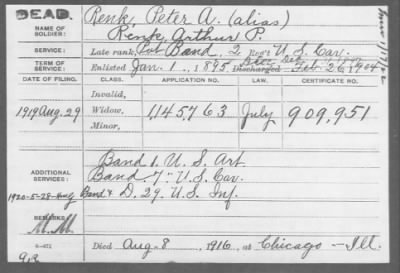 DEAD.
Renk, Peter A. (alias)
NAME OF SOLDIER: Renk, Arthur P.
SERVICE: Late rank, Pvt Band, 2 Reg't U. S. Cav.
TERM OF SERVICE: Enlisted Jan. 1, 1895, Discharged Feb. 26, 1904
DATE OF FILING. CLASS. APPLICATION NO. LAW. CERTIFICATE NO.
Invalid,
1919 Aug. 29 Widow, 1145763 July 909,951
Minor,
ADDITIONAL SERVICES:
Band 1. U. S. Art.
Band. 7" U. S. Cav.
1920-5-28- Band & D. 29. U. S. Inf.
REMARKS:
Died Aug. 8, 1916, at Chicago - Ill.